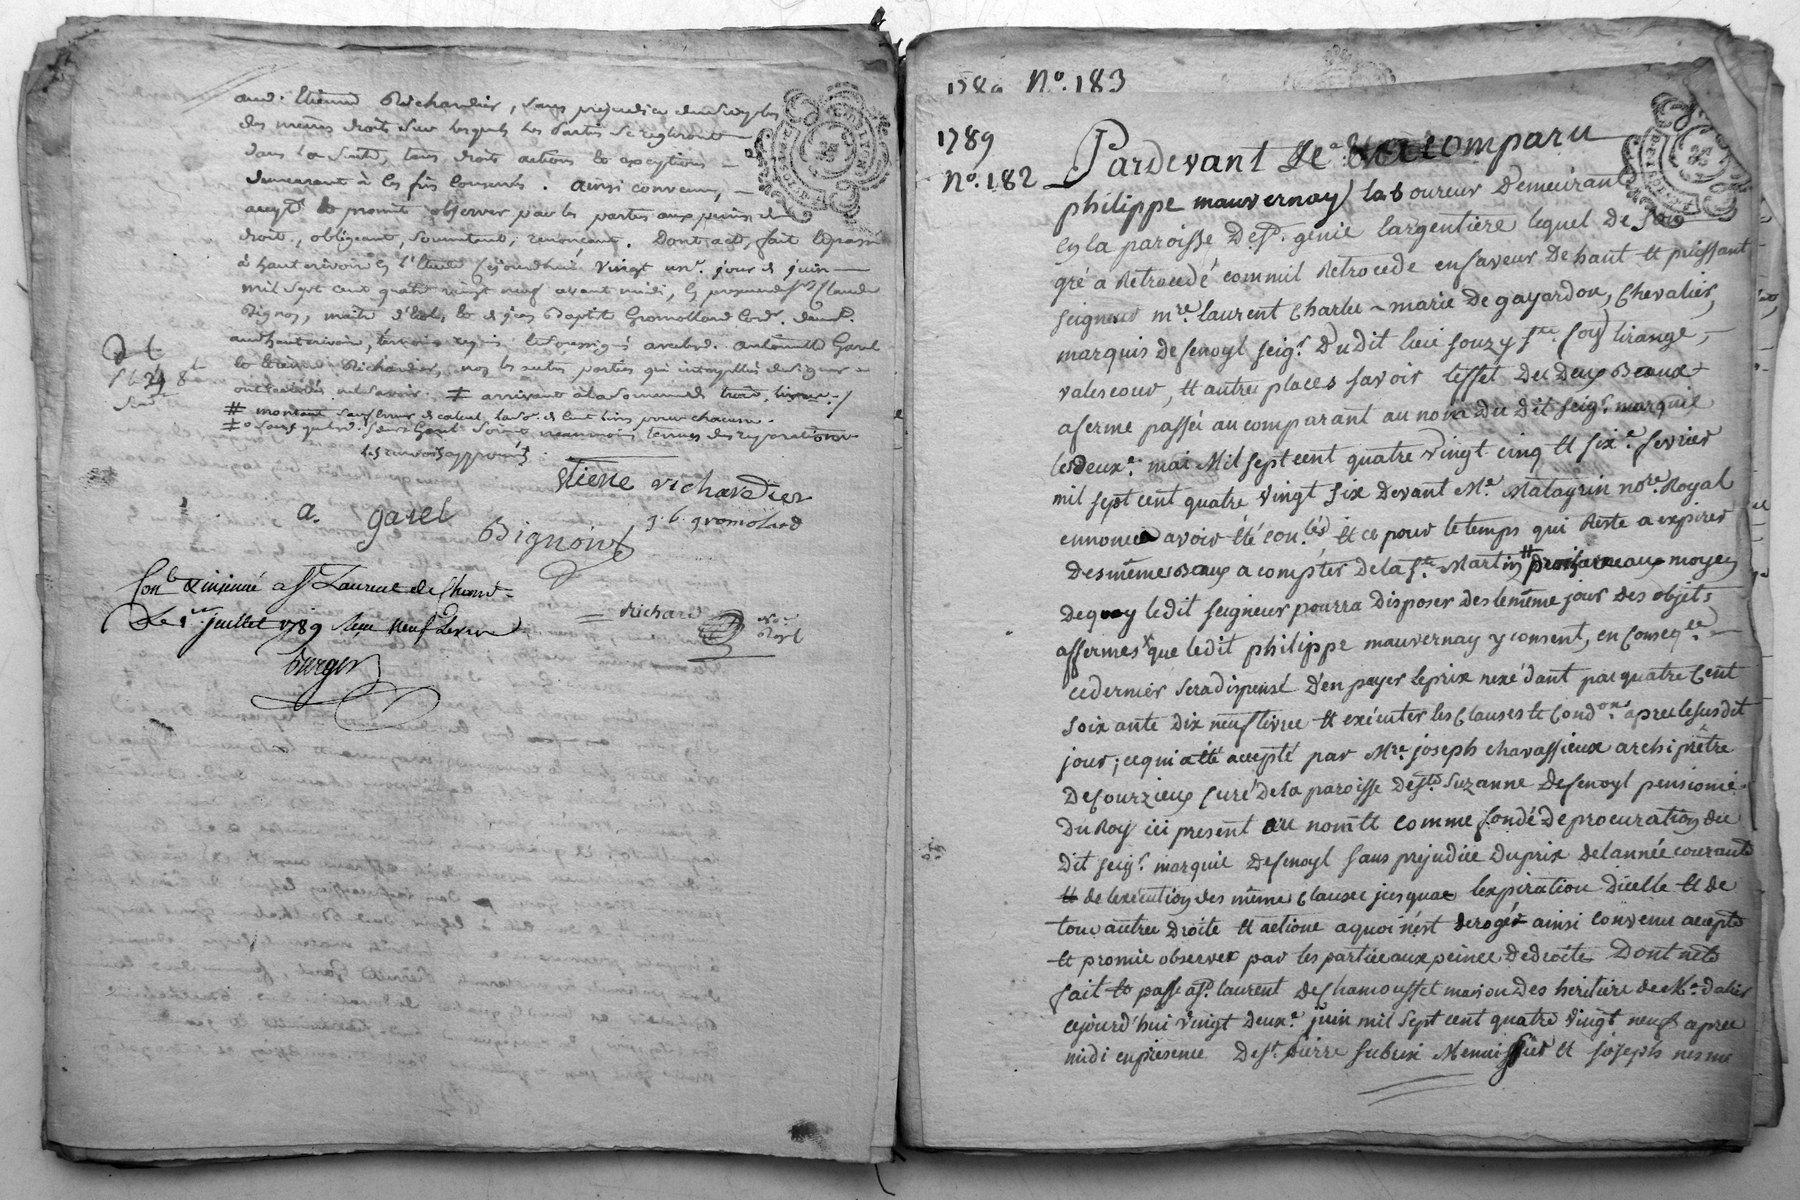 and. Etienne Richardier, sans prejudice
des mêmes droits sur lesquels les parties se regleront
dans la suite, tous droits actions & exceptions
demeurant à les fins Consents. Ainsi convenu,
accepté & promit observer par les parties aux peines de
droit, obligeant, soumettant, renonçant. Dont act, fait & passé
à hauterivoire en l'Etude cejourdhui vingt un.e jour de juin
mil sept cent quatre vingt neuf avant midi, en presence de Sr. Claude
Bignon, maitre d'Ecole, & de jean Baptiste Gromollard Cord.
audhauterivoire, témoins requis & soussignés avec led. Antoinette Garel
& Etienne Richardier, non les autres parties qui interpellés de signer
ont déclaré ne savoir. ⵌ arrivant à la somme de trois livres
ⵌ montant sauf erreur de calcul, la somme de cent livres pour chacun.
les renvois approuvés
Etiene richardier
a. garel
Bignon
g. b. gromolard
Con.lé & insinué a St Laurent de Cham.
Le 1er juillet 1789 Reçu neuf Livres
burger
Richard
No.re
Royl
1789 N°. 183
1789
N°. 182
Pardevant Me. a comparu
philippe mauvernay laboureur Demeurant
En la paroisse De St. genie largentiere lequel de son
gré a Retrocedé comm'il Retrocede en faveur De haut et puissant
seigneur mre. laurent Charles-marie De gayardon, Chevalier,
marquis de fenoyl seigr. Dudit lieu souzy ste. foy lirange,
valescour, et autres places savoir l'effet Des Deux Beaux
a ferme passés au comparant au nom Du Dit seigr. marquis
les deuxe. mai Mil sept cent quatre vingt cinq et sixe. fevrier
mil sept cent quatre vingt six Devant Me. Matagrin nore. Royal
ennoncés avoir été con.lés, et ce pour le temps qui Reste a expirer
Des même Beaux a compter de la St. Martin ⵌ moyen
De quoy ledit seigneur pourra Disposer des le même jour Des objets
affermés que ledit philippe mauvernay y consent, en Conseq.ce
ce dernier sera dispensé D'en payer le prix nexédant pas quatre Cent
soixante Dix neuf livres et exécuter les Clauses & Condons. après le susdit
jour; ce qui a été accepté par Mre. joseph chavassieux archiprêtre
De Courzieux Curé De la paroisse De Ste Suzanne De fenoyl pensionné
Du Roy ici present au nom & comme fondé De procuration du
Dit seigr. marquis De fenoyl sans prejudice Du prix De l'année courante
et de l'execution des même Clauses jusquae l'expiration D'icelle et de
tous autres Droits et actions a quoi n'est derogé ainsi Convenu accepté
et promis observer par les parties aux peines De droits Dont acte
fait & passé a St. laurent De Chamousset maison Des heritiers de Me. dalier
cejourd'hui vingt Deuxe. juin mil sept cent quatre vingt neuf apres
midi en presence De Sr. pierre Menuisier et joseph